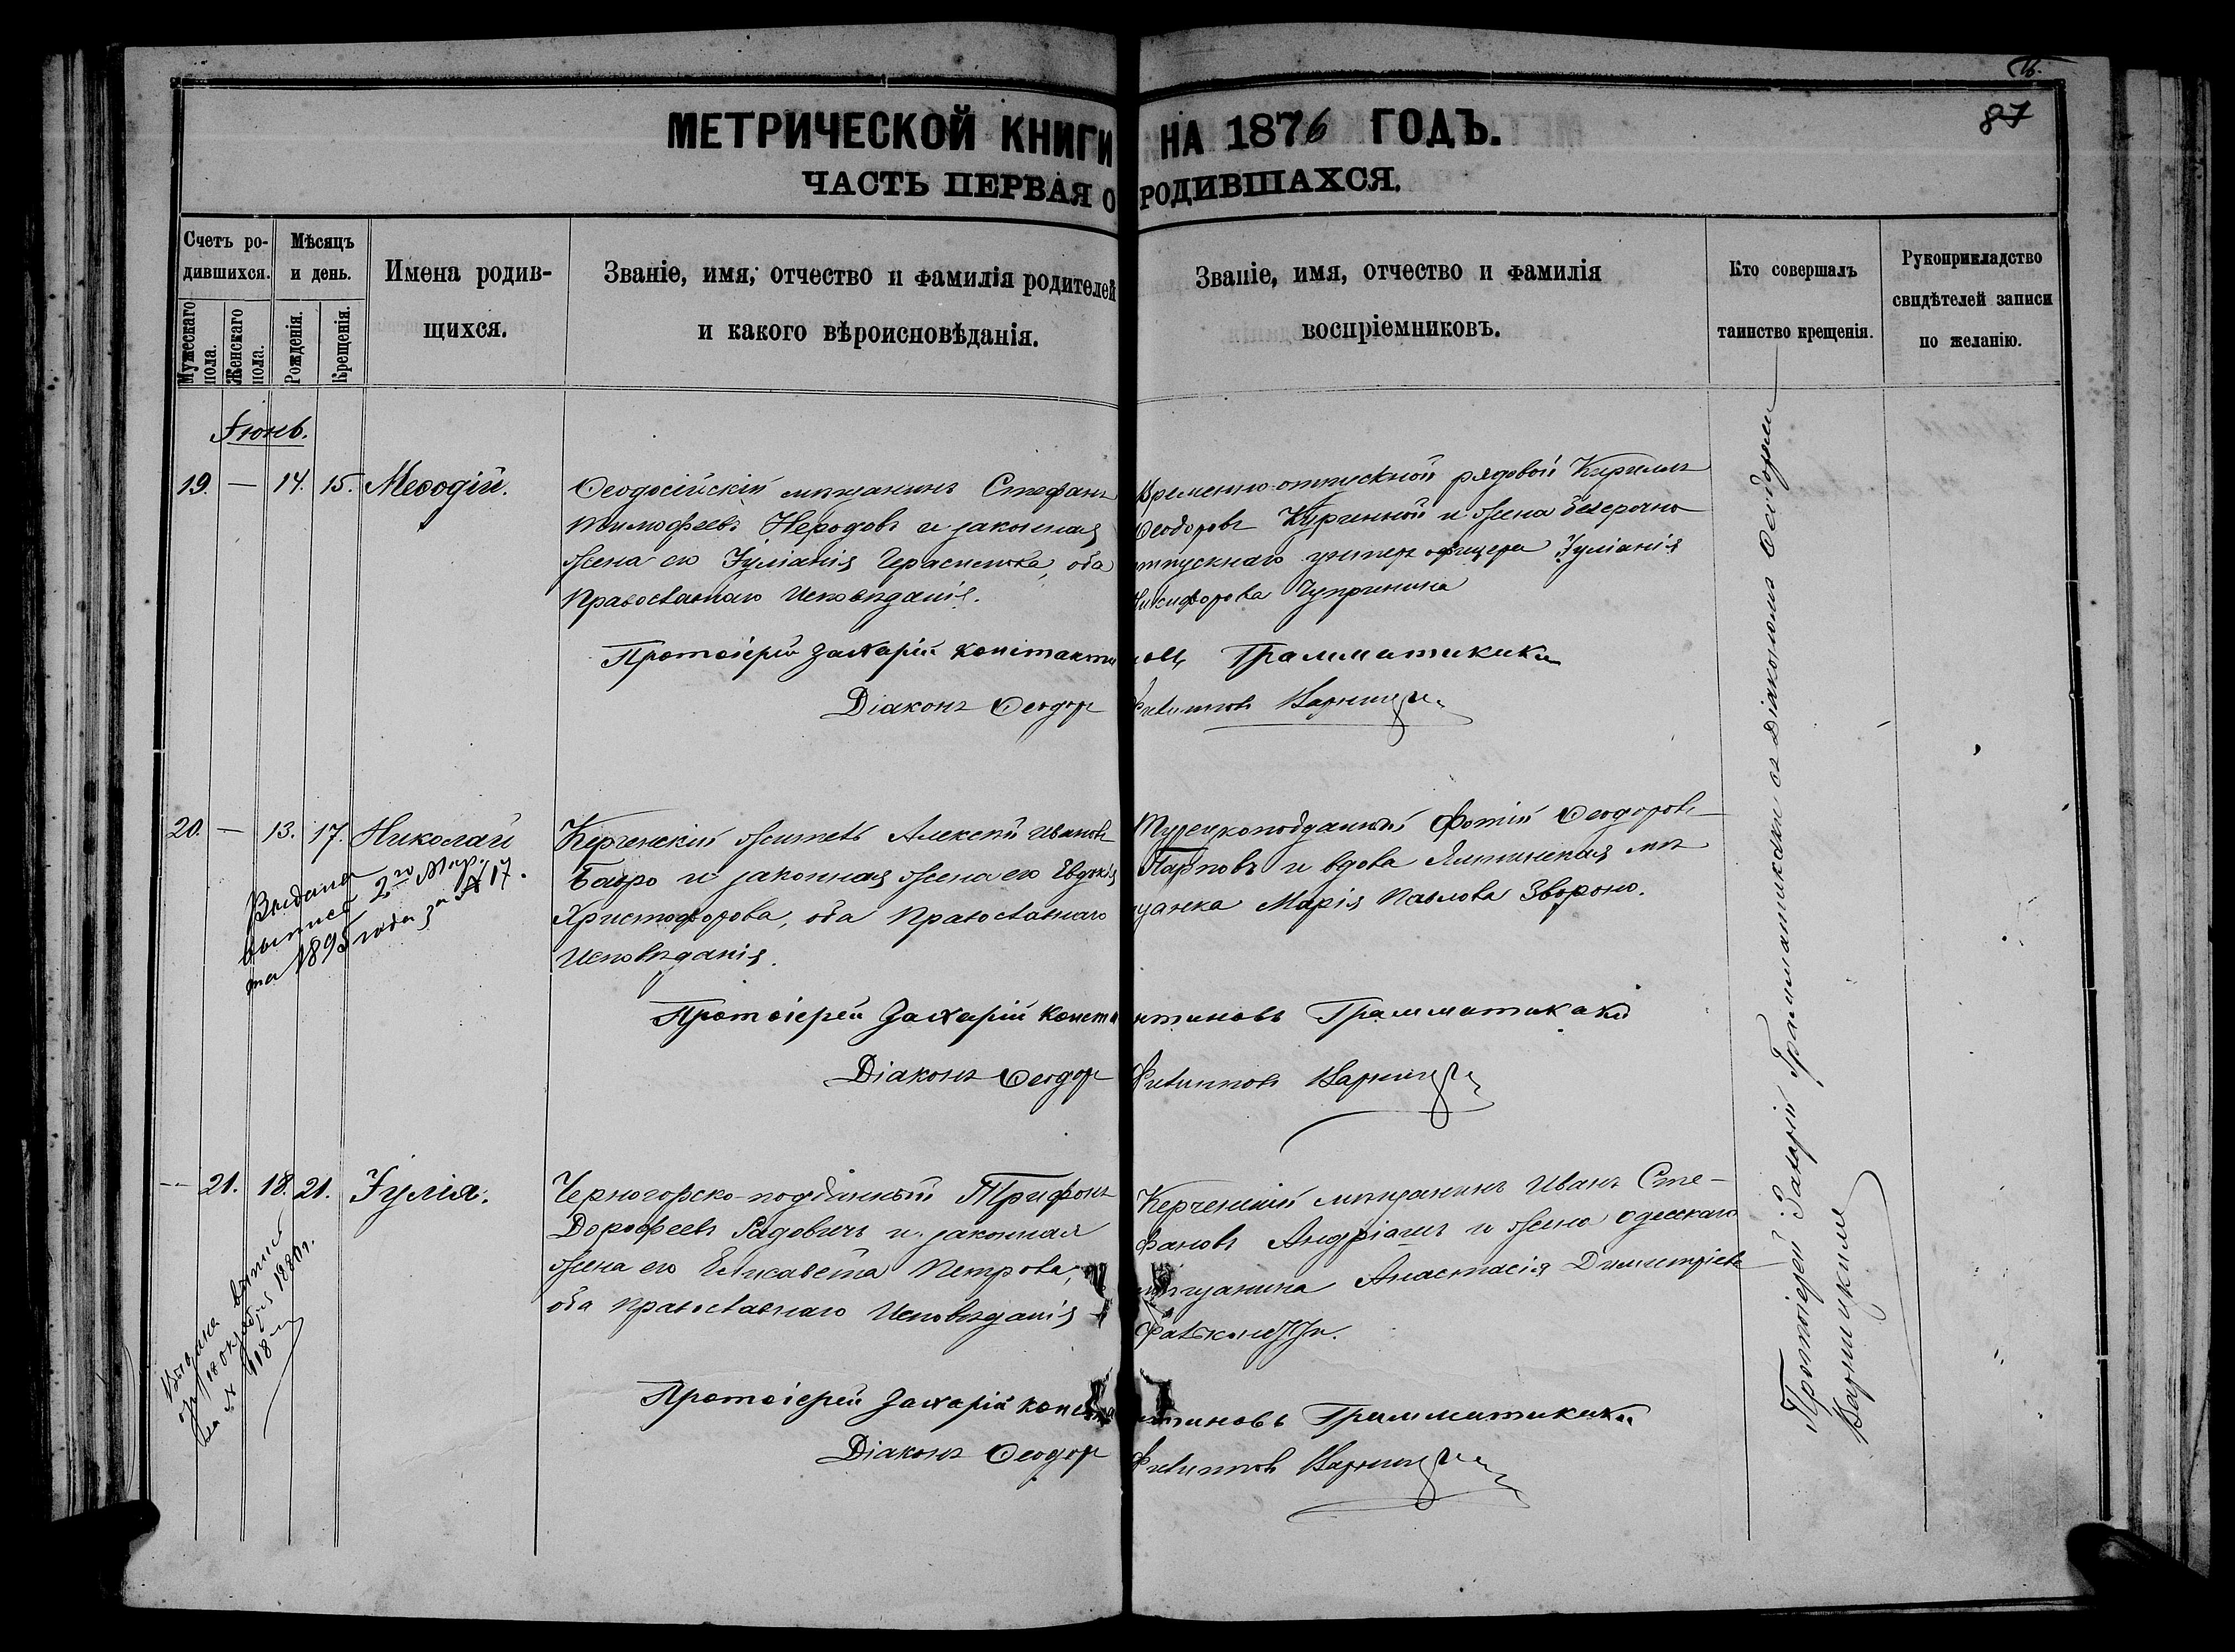 87
МЕТРИЧЕСКОЙ КНИГИ НА 1876 ГОДЪ.
ЧАСТЬ ПЕРВАЯ О РОДИВШАХСЯ.
Счетъ ро-
дившихся.
Мужескаго
пола.
Женскаго
пола.
Мѣсяцъ
и день.
Рожденія.
Крещенія.
Имена родив-
щихся.
Званіе, имя, отчество и фамилія родителей
и какого вѣроисповѣданія.
Званіе, имя, отчество и фамилія
воспріемниковъ.
Кто совершалъ
таинство крещенія.
Рукоприкладство
свидѣтелей записи
по желанію.
Іюнь.
19. — 14. 15. Меѳодій.
Ѳеодосійскій мѣщанинъ Стефанъ
Тимофеевъ Нередовъ и законная
жена его Іуліанія Герасимова, оба
Православнаго Исповѣданія.
Временно-отпускной рядовой Кириллъ
Ѳеодоровъ и жена безсрочно
отпускнаго унтеръ офицера Іуліанія
Никифорова Чупринина
Протоіерей Захарій Константиновъ Грамматикаки
Діаконъ Ѳеодоръ Филипповъ
20. — 13. 17. Николай
Керченскій житель Алексѣй Ивановъ
Бавро и законная жена его Евдокія
Христофорова, оба Православнаго
Исповѣданія.
Турецкоподданный Фотій Ѳеодоровъ
Парповъ и вдова Ялтинская мѣ-
щанка Марія Павлова Звороно.
Выдана
выпись 2го Мар-
та 1895 года за № 17.
Протоіерей Захарій Константиновъ Грамматикаки
Діаконъ Ѳеодоръ Филипповъ
— 21. 18. 21. Іулія.
Черногорско-подданный Трифонъ
Дорофеевъ Радовичъ и законная
жена его Елисавета Петрова,
оба Православнаго Исповѣданія
Керченскій мѣщанинъ Иванъ Сте-
фановъ Андріашъ и жена одесскаго
мѣщанина Анастасія Димитріева
Выдана выпись
18 октября
за № 118
Протоіерей Захарій Константиновъ Грамматикаки
Діаконъ Ѳеодоръ Филипповъ
Протоіерей Захарій Грамматикаки съ Діакономъ Ѳеодоромъ